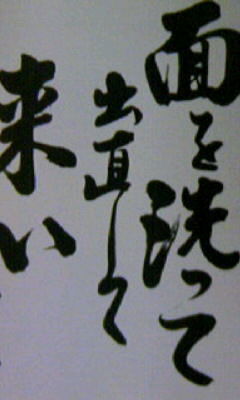 面を洗って
出直して
来い